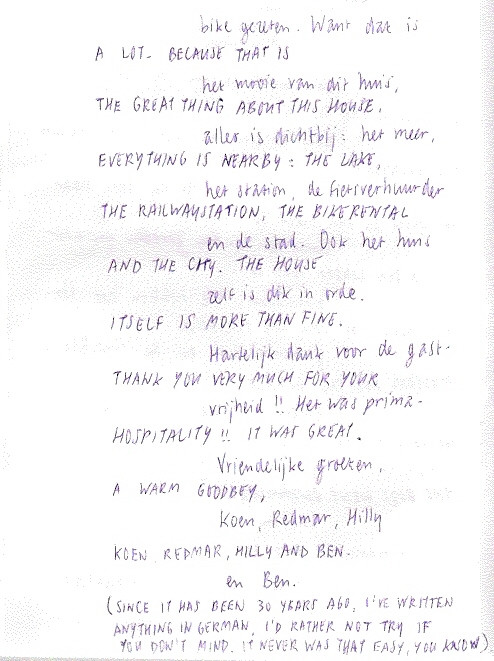 bike gezeten. Want dat is
A LOT. BECAUSE THAT IS
het mooie van dit huis,
THE GREAT THING ABOUT THIS HOUSE.
alles is dichtbij: het meer,
EVERYTHING IS NEARBY: THE LAKE,
het station, de fietsverhuurder
THE RAILWAYSTATION, THE BIKERENTAL
en de stad. Ook het huis
AND THE CITY. THE HOUSE
zelf is dik in orde.
ITSELF IS MORE THAN FINE.
Hartelijk dank voor de gast-
THANK YOU VERY MUCH FOR YOUR
vrijheid !! Het was prima-
HOSPITALITY !! IT WAS GREAT.
Vriendelijke groeten,
A WARM GOODBEY,
Koen, Redmar, Hilly
KOEN, REDMAR, HILLY AND BEN.
en Ben.
(SINCE IT HAS BEEN 30 YEARS AGO, I'VE WRITTEN
ANYTHING IN GERMAN, I'D RATHER NOT TRY IF
YOU DON'T MIND. IT NEVER WAS THAT EASY, YOU KNOW)